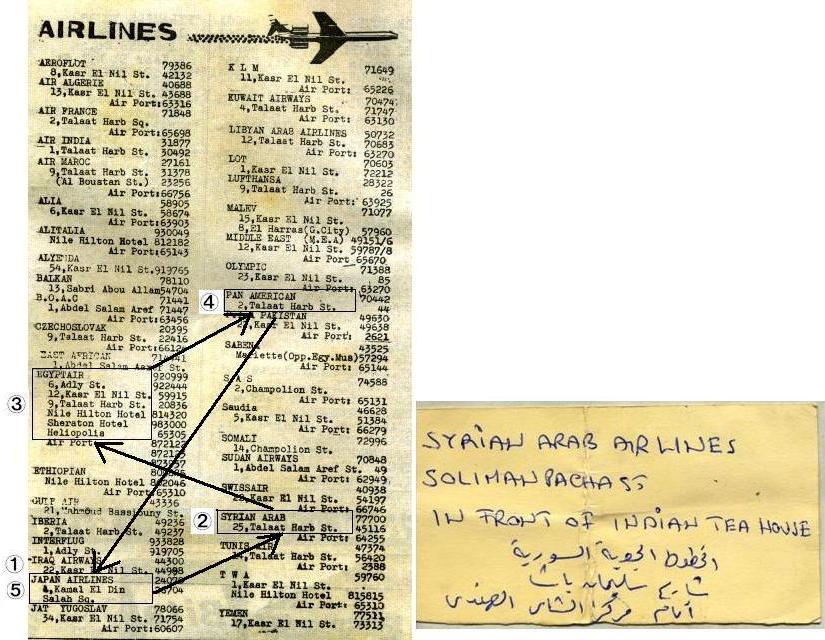 AIRLINES
AEROFLOT 79386
8,Kasr El Nil St. 42132
AIR ALGERIE 40688
13,Kasr El Nil St. 43688
Air Port:63316
AIR FRANCE 71848
2,Talaat Harb Sq.
Air Port:65698
AIR INDIA 31877
1,Talaat Harb St. 30492
AIR MAROC 27161
9,Talaat Harb St. 31378
(Al Boustan St.) 23256
Air Port:66756
ALIA 58905
6,Kasr El Nil St. 58674
Air Port:63903
ALITALIA 930049
Nile Hilton Hotel 812182
Air Port:65143
ALYEMDA
54,Kasr El Nil St.919765
BALKAN 78110
13,Sabri Abou Allam54704
B.O.A.C 71441
1,Abdel Salam Aref 71447
Air Port:63456
CZECHOSLOVAK 20395
9,Talaat Harb St. 22416
Air Port:
EAST AFRICAN
1,Abdel Salam Aref St.
③
EGYPTAIR 920999
6,Adly St. 922444
12,Kasr El Nil St. 59915
9,Talaat Harb St. 20836
Nile Hilton Hotel 814320
Sheraton Hotel 983000
Heliopolis 65305
Air Port
ETHIOPIAN
Nile Hilton Hotel
Air Port:65310
GULF AIR 43336
21,Mahmoud Bassiouny St.
IBERIA 49236
2,Talaat Harb St. 49237
INTERFLUG 933828
1,Adly St. 919705
①
IRAQ AIRWAYS 44300
22,Kasr El Nil St. 44998
⑤
JAPAN AIRLINES
4,Kamal El Din
Salah Sq.
JAT YUGOSLAV 78066
34,Kasr El Nil St. 71754
Air Port:60607
K L M 71649
11,Kasr El Nil St.
Air Port: 65226
KUWAIT AIRWAYS 70474
4,Talaat Harb St. 71747
Air Port: 63130
LIBYAN ARAB AIRLINES 50732
12,Talaat Harb St. 70683
Air Port: 63270
LOT 70603
1,Kasr El Nil St. 72212
LUFTHANSA 28322
9,Talaat Harb St. 26
Air Port: 63925
MALEV 71077
15,Kasr El Nil St.
8,El Harras(G.City) 57960
MIDDLE EAST (M.E.A) 49151/6
12,Kasr El Nil St. 59787/8
Air Port 65670
OLYMPIC 71388
23,Kasr El Nil St. 85
Air Port: 63270
④
PAN AMERICAN 70442
2,Talaat Harb St. 44
PAKISTAN 49630
Kasr El Nil St. 49638
Air Port: 2621
SABENA 43525
Mariette(Opp.Egy.Mus)57294
Air Port: 65144
S A S 74588
2,Champolion St.
Air Port: 65131
Saudia 46628
5,Kasr El Nil St. 51384
Air Port: 66279
SOMALI 72996
14,Champolion St.
SUDAN AIRWAYS 70848
1,Abdel Salam Aref St. 49
Air Port: 62949
SWISSAIR 40938
Kasr El Nil St. 54197
Air Port: 66746
②
SYRIAN ARAB 77700
25,Talaat Harb St. 45116
Air Port: 64255
TUNIS AIR 47374
Talaat Harb St. 56420
Air Port: 2388
T W A 59760
1,Kasr El Nil St.
Nile Hilton Hotel 815815
Air Port: 65310
YEMEN 77511
17,Kasr El Nil St. 73313
SYRIAN ARAB AIRLINES
SOLIMAN PACHA SS
IN FRONT OF INDIAN TEA HOUSE
الخطوط الجوية السورية
شارع سليمان باشا
أمام مركز الشاى الهندى